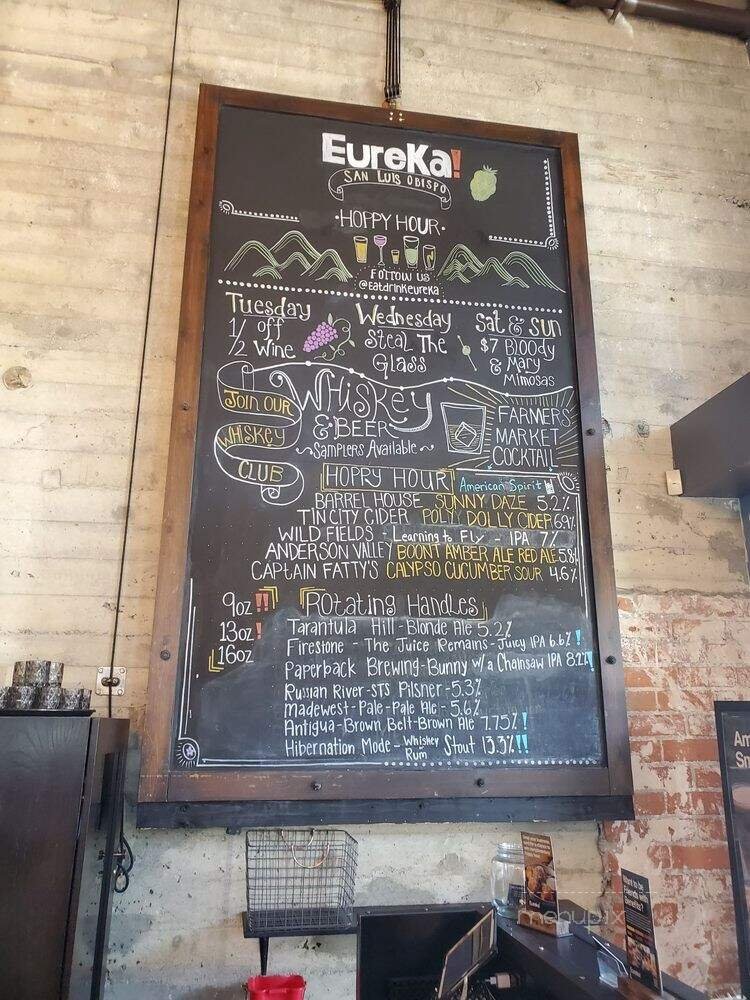 EureKa!
SAN LUIS OBISPO
·HOPPY HOUR·
FOLLOW US
@Eatdrinkeureka
Tuesday
1/2 off
Wine
Wednesday
Steal The
Glass
Sat & Sun
$7 Bloody
& Mary
Mimosas
JOIN OUR
WHISKEY
CLUB
WHISKEY
& BEER
~Samplers Available~
FARMERS
MARKET
COCKTAIL
HOPPY HOUR
American Spirit
BARREL HOUSE SUNNY DAZE 5.2%
TIN CITY CIDER POLY DOLLY CIDER 6.9%
WILD FIELDS - Learning to FLY - IPA 7%
ANDERSON VALLEY BOONT AMBER ALE RED ALE 5.8%
CAPTAIN FATTY'S CALYPSO CUCUMBER SOUR 4.6%
9oz!!
13oz!
16oz
ROtating Handles
Tarantula Hill-Blonde Ale 5.2%
Firestone - The Juice Remains-Juicy IPA 6.6%!
Paperback Brewing-Bunny w/a Chainsaw IPA 8.2%!
Russian River-STS Pilsner-5.3%
Madewest-Pale-Pale Ale-5.6%
Antigua-Brown Belt-Brown Ale 7.75%!
Hibernation Mode-Whiskey Rum Stout 13.3%!!
Want to be
Friends with
Benefits?
menupix